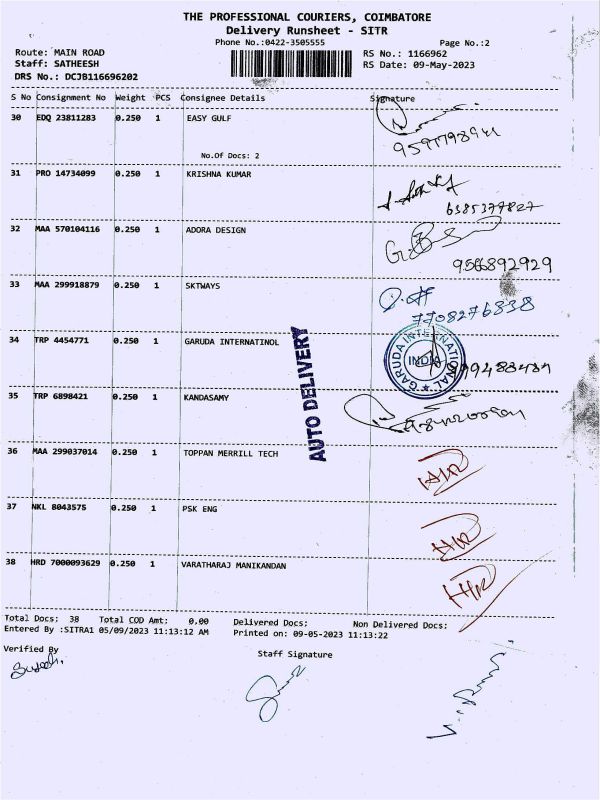 THE PROFESSIONAL COURIERS, COIMBATORE
Delivery Runsheet - SITR
Phone No.:0422-3505555 Page No.:2
Route: MAIN ROAD RS No.: 1166962
Staff: SATHEESH RS Date: 09-May-2023
DRS No.: DCJB116696202
S No Consignment No Weight PCS Consignee Details Signature
30 EDQ 23811283 0.250 1 EASY GULF
No.Of Docs: 2
31 PRO 14734099 0.250 1 KRISHNA KUMAR
6385377827
32 MAA 570104116 0.250 1 ADORA DESIGN
9566892929
33 MAA 299918879 0.250 1 SKTWAYS
7708276838
34 TRP 4454771 0.250 1 GARUDA INTERNATINOL
GARUDA INTERNATIONAL
INDIA
35 TRP 6898421 0.250 1 KANDASAMY
AUTO DELIVERY
36 MAA 299037014 0.250 1 TOPPAN MERRILL TECH
37 NKL 8043575 0.250 1 PSK ENG
38 HRD 7000093629 0.250 1 VARATHARAJ MANIKANDAN
Total Docs: 38 Total COD Amt: 0.00 Delivered Docs: Non Delivered Docs:
Entered By :SITRA1 05/09/2023 11:13:12 AM Printed on: 09-05-2023 11:13:22
Verified By Staff Signature